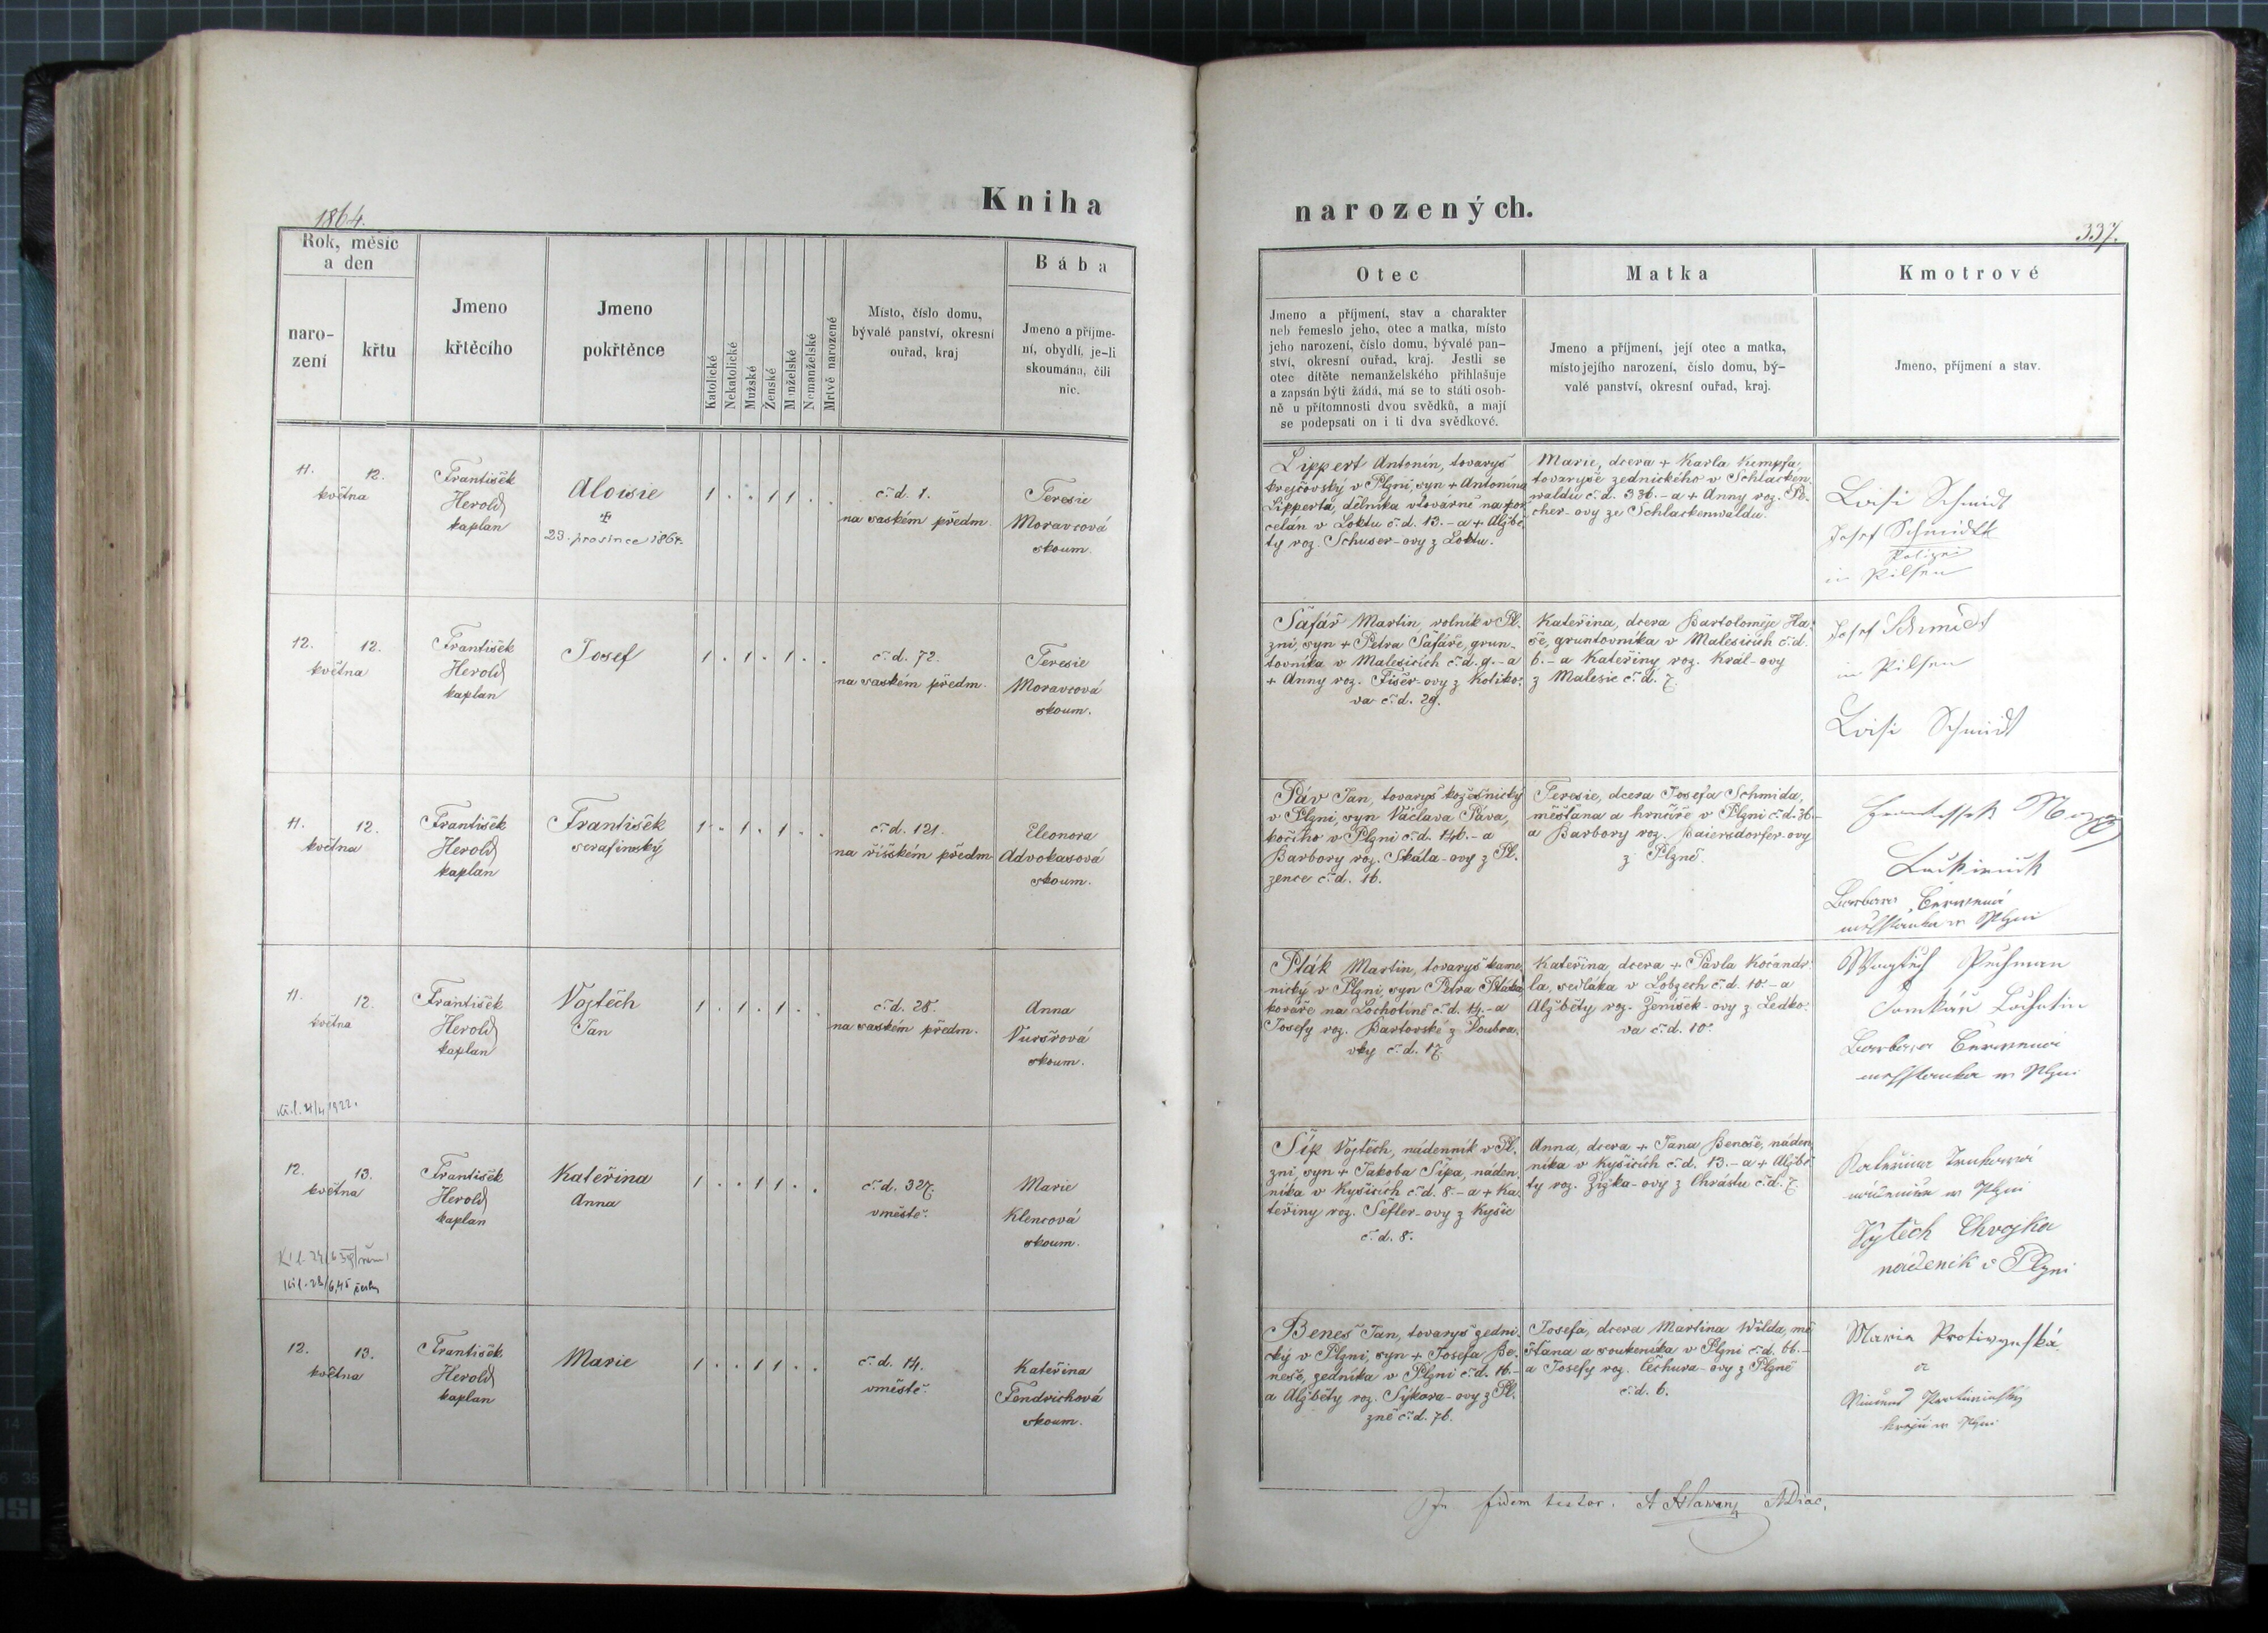 Kniha
narozených.
1864.
337.
Rok, měsíc
a den
naro-
zení
křtu
Jmeno
křtěcího
Jmeno
pokřtěnce
Katolické
Nekatolické
Mužské
Ženské
Manželské
Nemanželské
Mrtvě narozené
Místo, číslo domu,
bývalé panství, okresní
ouřad, kraj
Bába
Jmeno a příjme-
ní, obydlí, je-li
skoumána, čili
nic.
Otec
Jmeno a příjmení, stav a charakter
neb řemeslo jeho, otec a matka, místo
jeho narození, číslo domu, bývalé pan-
ství, okresní ouřad, kraj. Jestli se
otec dítěte nemanželského přihlašuje
a zapsán býti žádá, má se to státi osob-
ně u přítomnosti dvou svědků, a mají
se podepsati on i ti dva svědkové.
Matka
Jmeno a příjmení, její otec a matka,
místo jejího narození, číslo domu, bý-
valé panství, okresní ouřad, kraj.
Kmotrové
Jmeno, příjmení a stav.
11. 12.
května
František
Herold
kaplan
Aloisie
23. prosince 1864.
1 . . 1 1 . .
č. d. 1.
na saském předm.
Teresie
Moravcová
skoum.
Lippert Antonín, tovaryš
krejčovský v Plzni, syn + Antonína
Lipperta, dělníka v továrně na por
celán v Loktu č. d. 13. - a + Alžbě
ty roz. Schuser-ovy z Loktu.
Marie, dcera + Karla Kempfa,
tovaryše zednického v Schlacken-
waldu č. d. 336. - a + Anny roz. Po-
cher-ovy ze Schlackenwaldu.
Loisi Schmidt
Josef Schmidt
Polizei
in Pilsen
12. 12.
května
František
Herold
kaplan
Josef
1 . 1 . 1 . .
č. d. 72.
na saském předm.
Teresie
Moravcová
skoum.
Šafář Martin, rolník v Pl-
zni, syn + Petra Šafáře, grun-
tovníka v Malesicích č. d. 9. - a
+ Anny roz. Fišer-ovy z Kotiko-
va č. d. 29.
Kateřina, dcera Bartoloměje Ha-
še, gruntovníka v Malesicích č. d.
6. - a Kateřiny roz. Král-ovy
z Malesic č. d. 7.
Josef Schmidt
in Pilsen
Loisi Schmidt
11. 12.
května
František
Herold
kaplan
František
serafinský
1 . 1 . 1 . .
č. d. 121.
na říšském předm.
Eleonora
Advokasová
skoum.
Páv Jan, tovaryš kožešnický
v Plzni, syn Václava Páva,
kočího v Plzni č. d. 146. - a
Barbory roz. Skála-ovy z Pl-
zence č. d. 16.
Teresie, dcera Josefa Schmida,
měšťana a hrnčíře v Plzni č. d. 36. -
a Barbory roz. Baiersdorfer-ovy
z Plzně.
Barbara
w Plzni
11. 12.
května
František
Herold
kaplan
Vojtěch
Jan
1 . 1 . 1 . .
č. d. 28.
na saském předm.
Anna
Vuršrová
skoum.
Pták Martin, tovaryš kame-
nický v Plzni, syn Petra Ptáka
kováře na Lochotíně č. d. 14. - a
Josefy roz. Bartovské z Doubra-
vky č. d. 17.
Kateřina, dcera + Pavla Kočandr-
la, sedláka v Lobzech č. d. 10. - a
Alžběty roz. Ženíšek-ovy z Ledko-
va č. d. 10.
Barbara
w Plzni
12. 13.
května
František
Herold
kaplan
Kateřina
Anna
1 . . 1 1 . .
č. d. 327.
v městě.
Marie
Klencová
skoum.
Šíp Vojtěch, nádenník v Pl-
zni, syn + Jakoba Šípa, náden-
níka v Kyšicích č. d. 8. - a + Ka-
teřiny roz. Šefler-ovy z Kyšic
č. d. 8.
Anna, dcera + Jana Beneše, náden-
níka v Kyšicích č. d. 13. - a + Alžbě
ty roz. Žižka-ovy z Chrástu č. d. 7.
w Plzni
Vojtěch Chvojka
nádeník v Plzni
12. 13.
května
František
Herold
kaplan
Marie
1 . . 1 1 . .
č. d. 14.
v městě.
Kateřina
Fendrichová
skoum.
Beneš Jan, tovaryš zedni-
cký v Plzni, syn + Josefa Be-
neše, zedníka v Plzni č. d. 16. -
a Alžběty roz. Sýkora-ovy z Pl-
zně č. d. 76.
Josefa, dcera Martina Wilda, mě
šťana a soukeníka v Plzni č. d. 66. -
a Josefy roz. Čechura-ovy z Plzně
č. d. 6.
Maria Protiwynská
w Plzni
fidem testor.